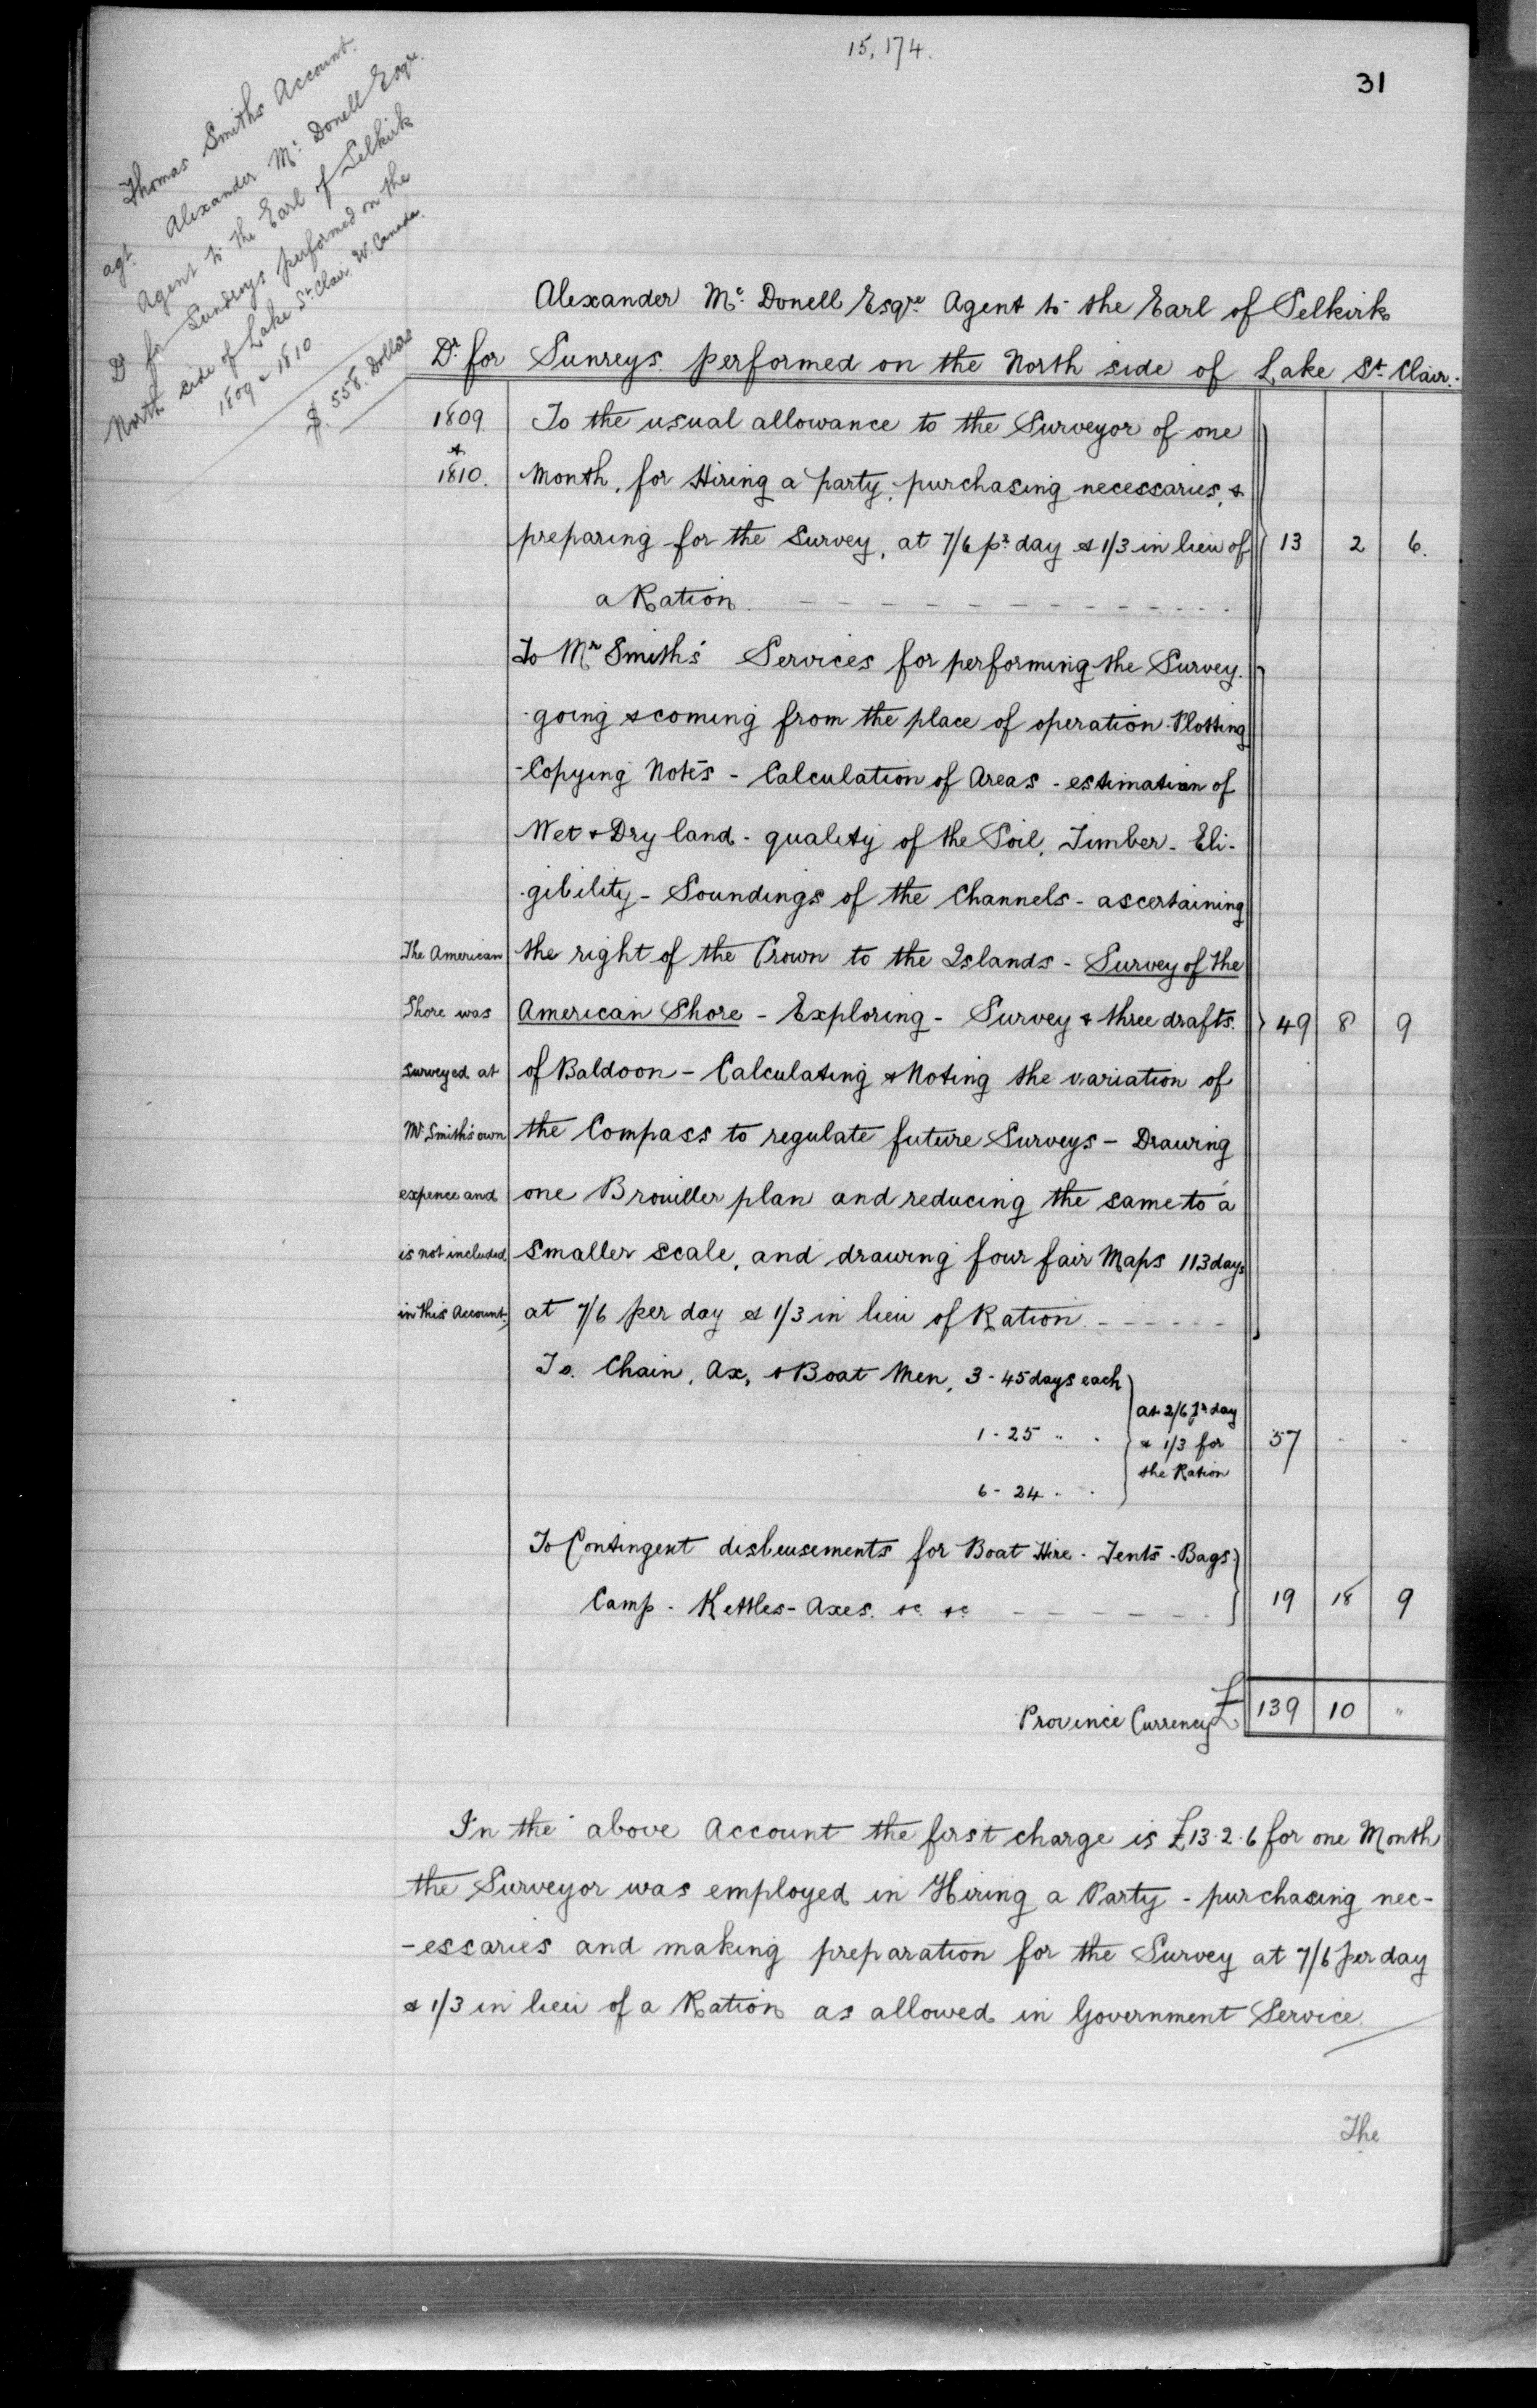 15,174.
31
Thomas Smiths Account.
agt. Alexander Mc. Donell Esqre.
Agent to the Earl of Selkirk
Dr for Sundrys performed on the
North side of Lake St. Clair. W. Canada.
1809 & 1810.
$. 558. Dollars
Alexander Mc. Donell Esqre Agent to the Earl of Selkirk
Dr. for Sunreys. performed on the North side of Lake St. Clair.
1809 To the usual allowance to the Surveyor of one
&
1810. Month, for Hiring a party, purchasing necessaries, &
preparing for the Survey, at 7/6 pr. day & 1/3 in lieu of 13 2 6.
a Ration.
To Mr Smith's Services for performing the Survey.
going & coming from the place of operation. Plotting
- Copying Notes - Calculation of Areas - estimation of
Wet & Dry land - quality of the Soil, Timber - Eli-
gibility - Soundings of the Channels - ascertaining
The American the right of the Crown to the Islands - Survey of the
Shore was American Shore - Exploring - Survey & three drafts. 49 8 9
surveyed at of Baldoon - Calculating & Noting the variation of
Mr Smith's own the Compass to regulate future Surveys - Drawing
expence and one Brouiller plan and reducing the same to a
is not included smaller scale, and drawing four fair Maps 113 days
in this Account. at 7/6 per day & 1/3 in lieu of Ration
To. Chain, Ax, & Boat Men, 3 - 45 days each
at 2/6 pr day
1 - 25 " . & 1/3 for 57 - -
the Ration
6 - 24 " .
To Contingent disbursements for Boat Hire - Tents - Bags
Camp - Kettles - Axes. &c. &c. 19 18 9
Province Currency £ 139 10 "
In the above Account the first charge is £13.2.6 for one Month
the Surveyor was employed in Hiring a Party - purchasing nec-
-essaries and making preparation for the Survey at 7/6 per day
& 1/3 in lieu of a Ration as allowed in Government Service.
The